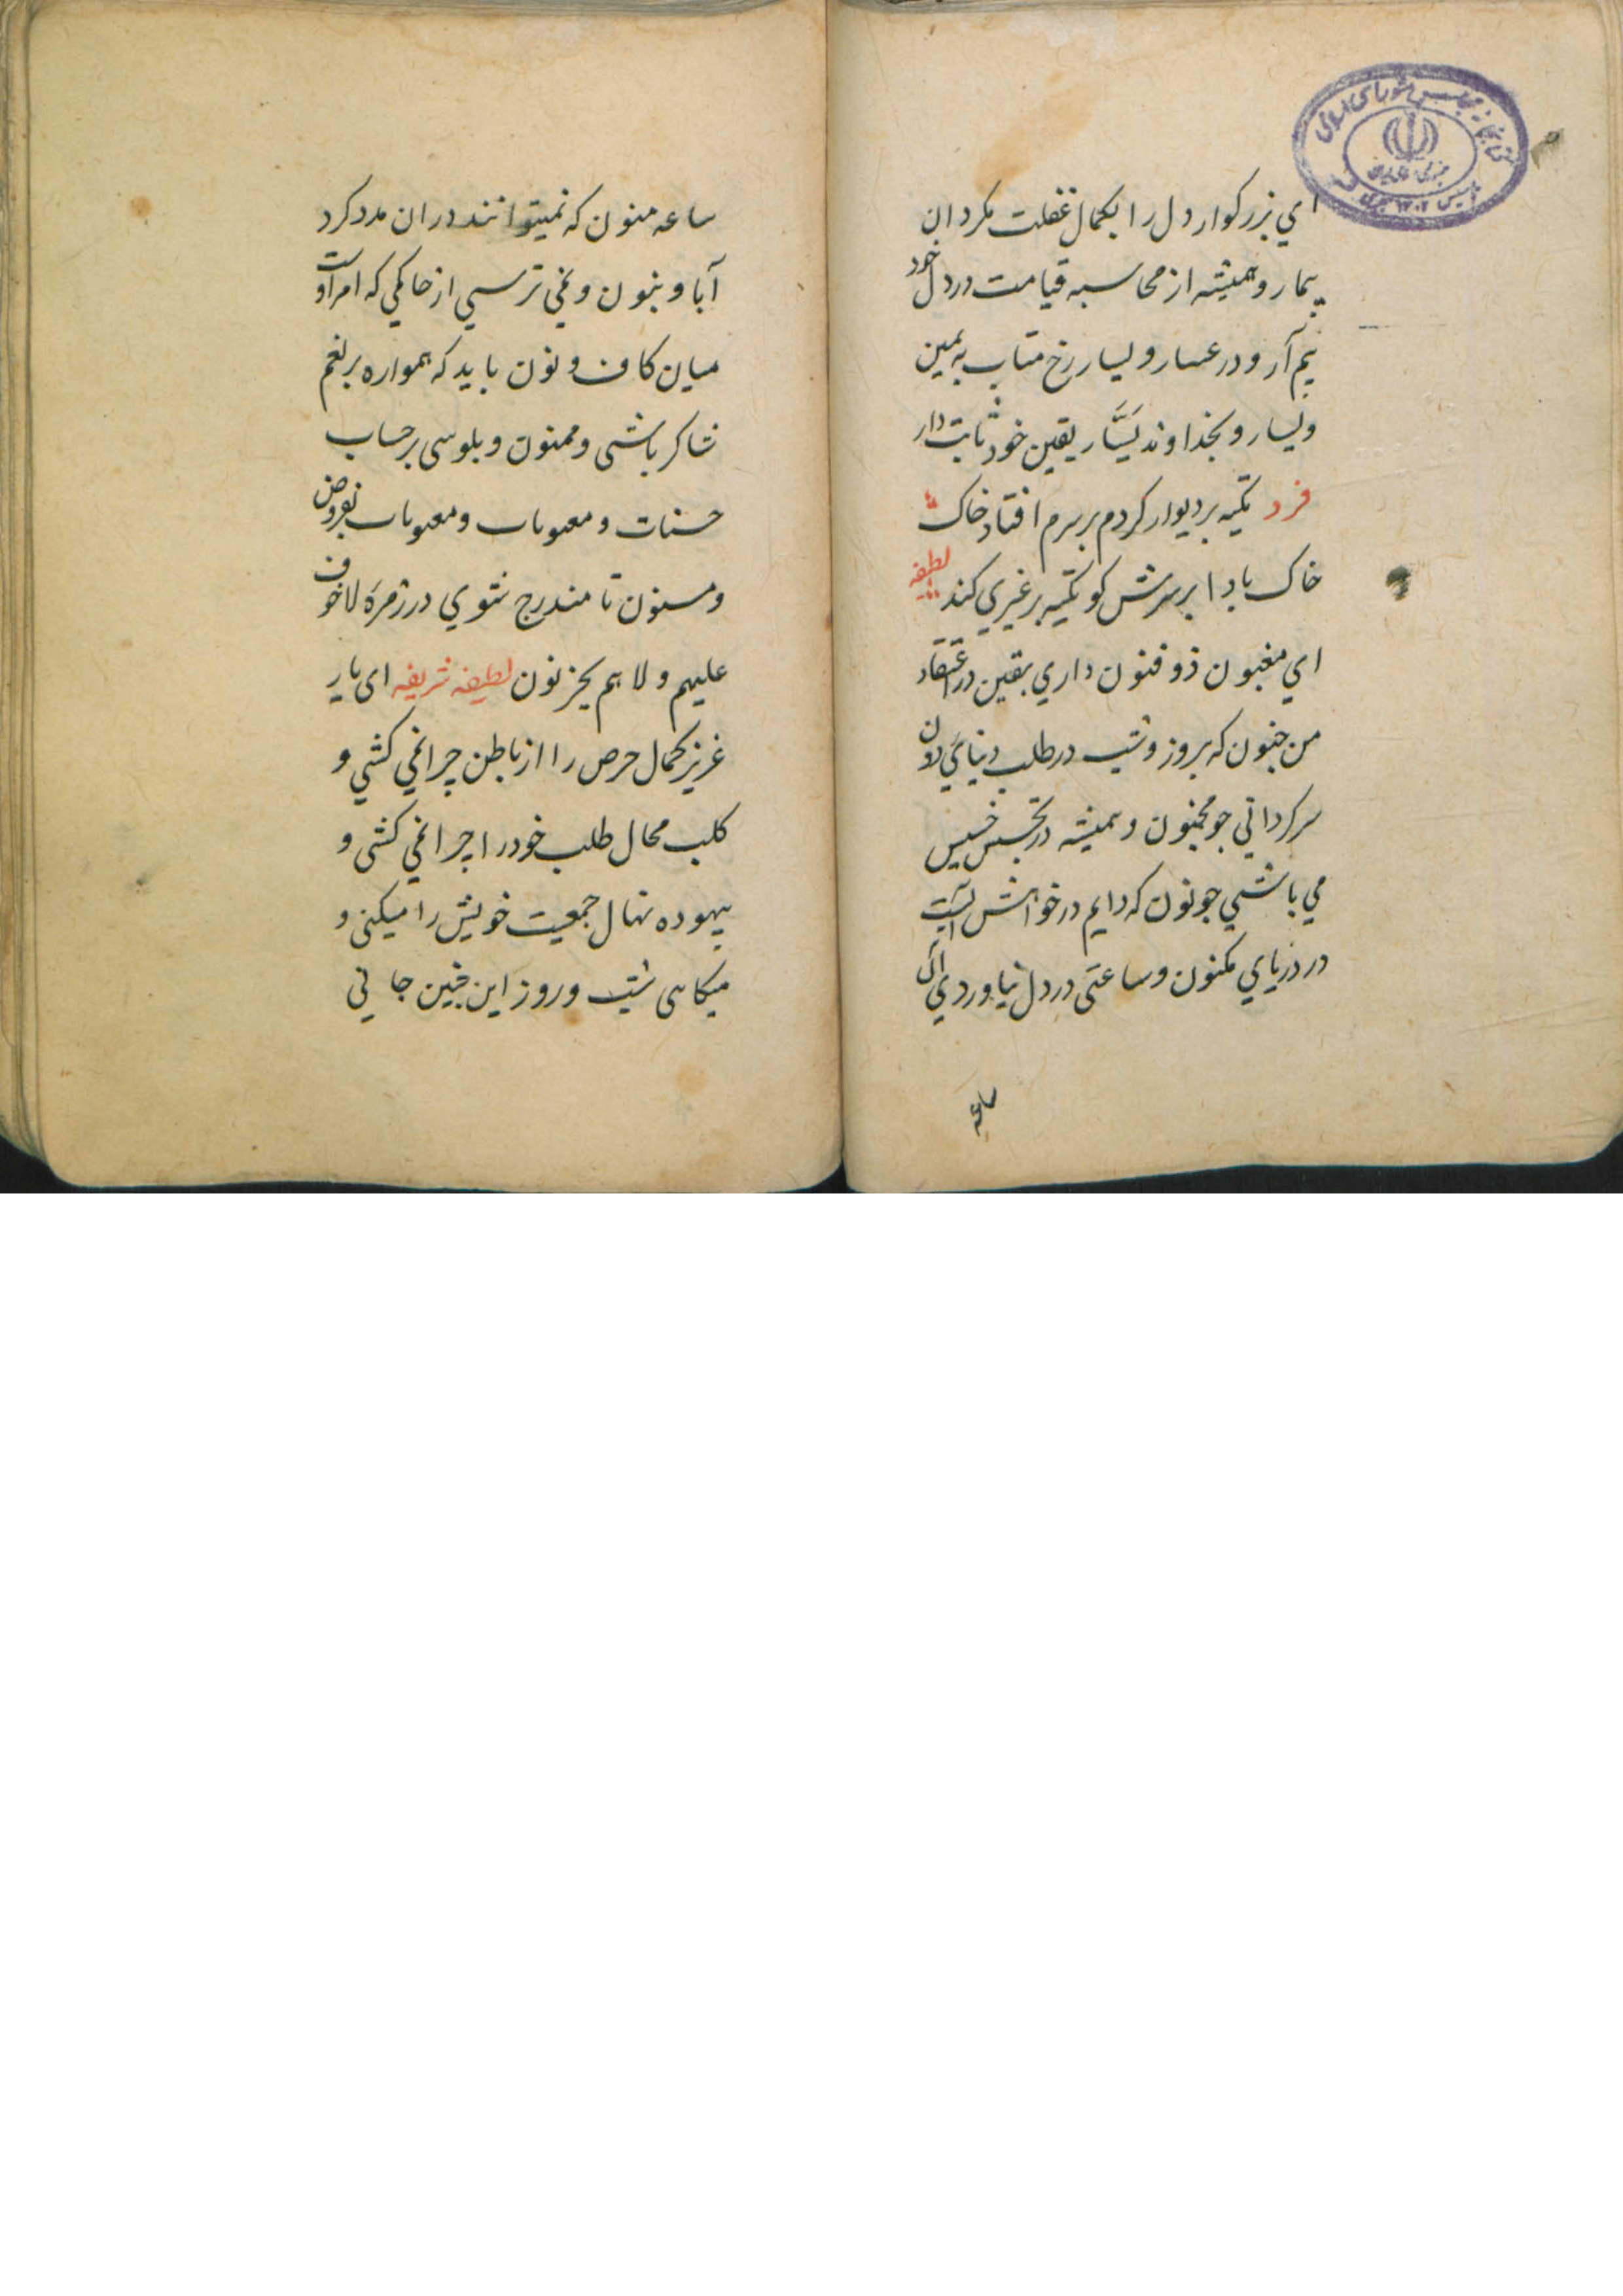 ای بزرکوار دل را بکمال غفلت مکردان
بیمار و همیشه از محاسبه قیامت در دل خود
بیم آر و در عسار و یسار رخ متاب به یمین
و یسار و بخداوند یَسَّار یقین خود ثابت دار
فرد تکیه بر دیوار کردم بر سرم افتاد خاک
خاک بادا بر سرش کو تکیه بر غیری کند لطیفه
ای مغبون ذو فنون داری یقین در اعتقاد
من جنون که بروز و شب در طلب دنیای دون
سرکردانی جو مجنون و همیشه در تجسس خسیس
می باشی جو نون که دایم در خواهش آنست
در دریای مکنون و ساعتی در دل نیاوردی آن
ساعه
کتابخانه مجلس شورای اسلامی
تاسیس ۱۳۰۲ هجری
ساعه منون که نمیتوانند در ان مدد کرد
آبا و بنون و نمی ترسی از حاکمی که امر اوست
میان کاف و نون باید که همواره بر نعم
شاکر باشی و ممنون و بلوسی بر حساب
حسنات و معیوبات و معیوبات بفروض
و مسنون تا مندرج شوی در زمره لا خوف
علیهم و لا هم یحزنون لطیفه شریفه ای یار
عزیز کحمال حرص را از باطن چرا نمی کشی و
کلب محال طلب خود را چرا نمی کشی و
بیهوده نهال جمعیت خویش را میکنی و
میکاهی شب و روز این جنین جانی